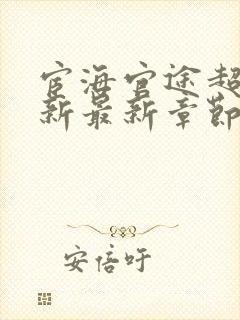 宦海官途超
新最新章节
安倍吁